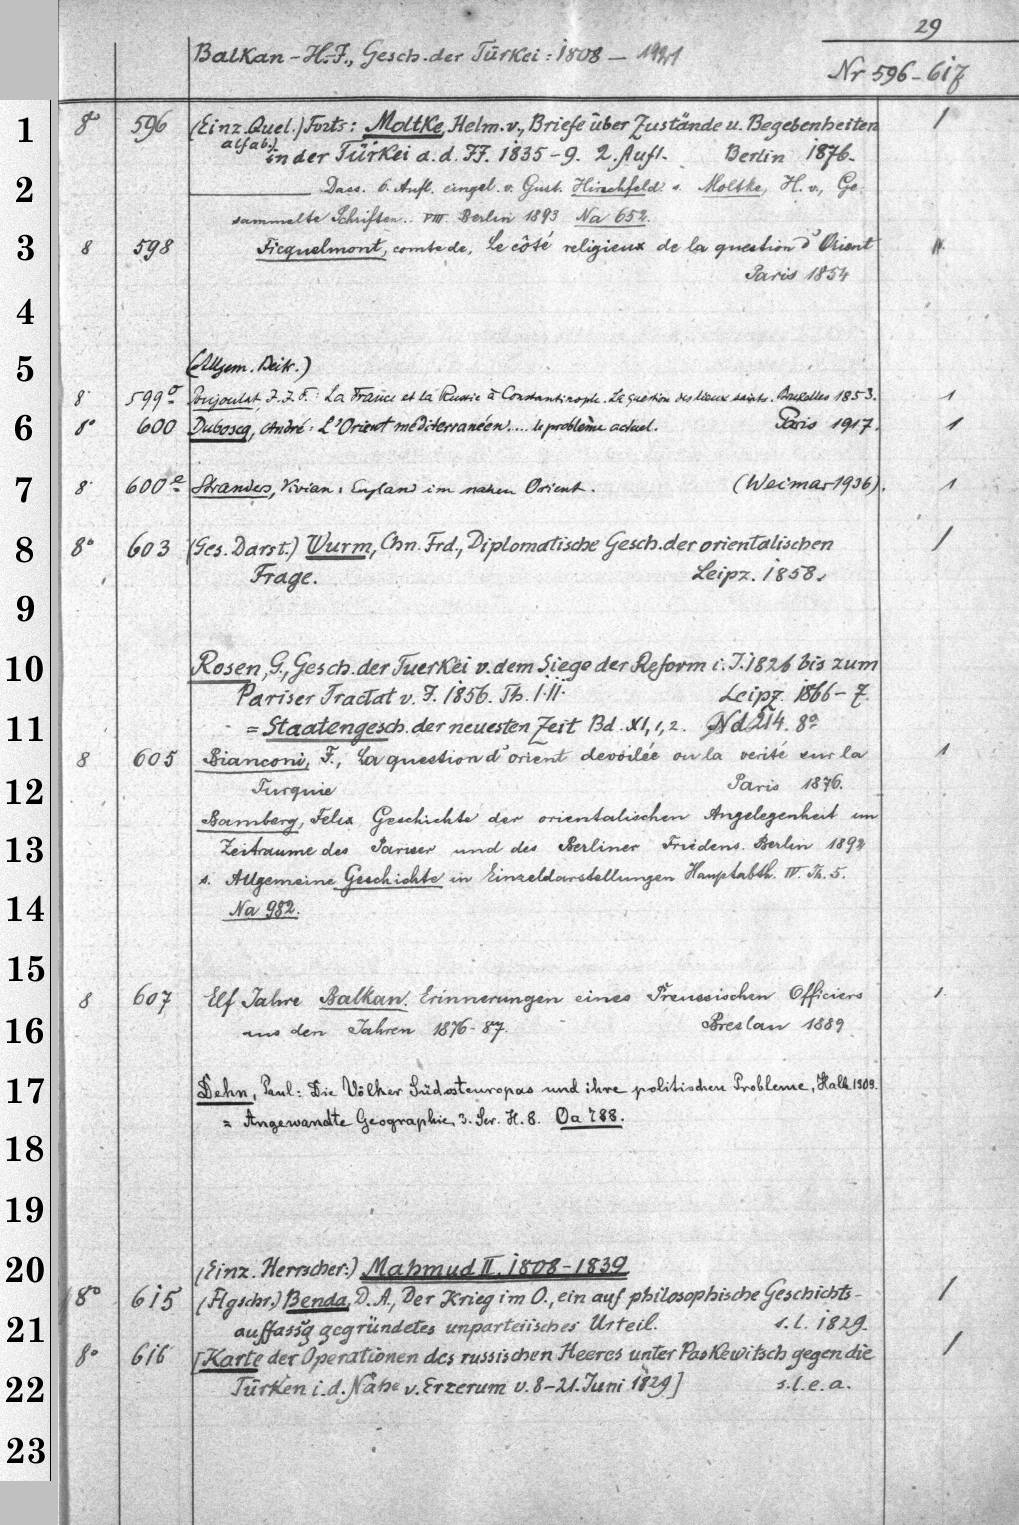 29
Balkan - H.-J., Gesch. der Türkei: 1808 -
Nr 596-617
1
8° 596 (Einz. Quel.) Forts: Moltke, Helm. v., Briefe über Zustände u. Begebenheiten 1
in der Türkei a. d. JJ. 1835-9. 2. Aufl. Berlin 1876.
2
Dass. 6. Aufl. eingel. v. Gust. Hirschfeld s. Moltke, H. v., Ge-
sammelte Schriften.. VIII. Berlin 1893 Na 652.
3
8 598 Ficquelmont, comte de, Le côté religieux de la question d'Orient
Paris 1854
4
5
(Allgem. Beitr.)
8° 599 Poujoulat, J. J. F.: La France et la Russie à Constantinople. La question des lieux saints. Bruxelles 1853. 1
6
8° 600 Duboscq, André: L'Orient méditerranéen.... le problème actuel. Paris 1917. 1
7
8° 600 e Strandes, Vivian: England im nahen Orient. (Weimar 1936). 1
8
8° 603 (Ges. Darst.) Wurm, Chn. Frd., Diplomatische Gesch. der orientalischen 1
Frage. Leipz. 1858.
9
10
Rosen, G., Gesch. der Tuerkei v. dem Siege der Reform i. J. 1826 bis zum
Pariser Tractat v. J. 1856. Th. I. II. Leipz. 1866-7.
11
= Staatengesch. der neuesten Zeit Bd. XI, 1, 2. Nd 214. 8°
8 605 Bianconi, F., La question d'orient dévoilée ou la verité sur la 1
12
Turquie Paris 1876.
Bamberg, Felix Geschichte der orientalischen Angelegenheit im
13
Zeitraume des Pariser und des Berliner Friedens. Berlin 1892
s. Allgemeine Geschichte in Einzeldarstellungen Hauptabth. IV. Th. 5.
14
Na 982.
15
8 607 Elf Jahre Balkan. Erinnerungen eines Preussischen Officiers 1
16
aus den Jahren 1876-87. Breslau 1889
17
Dehn, Paul: Die Völker Südosteuropas und ihre politischen Probleme, Halle 1909.
= Angewandte Geographie, 3. Ser. H. 8. Oa 788.
18
19
20
(Einz. Herrscher:) Mahmud II. 1808-1839
8° 615 (Flgschr.) Benda, D. A., Der Krieg im O., ein auf philosophische Geschichts- 1
21
auffassg gegründetes unparteiisches Urteil. s. l. 1829.
8° 616 [Karte der Operationen des russischen Heeres unter Paskewitsch gegen die 1
22
Türken i. d. Nähe v. Erzerum v. 8-21. Juni 1829] s. l. e. a.
23